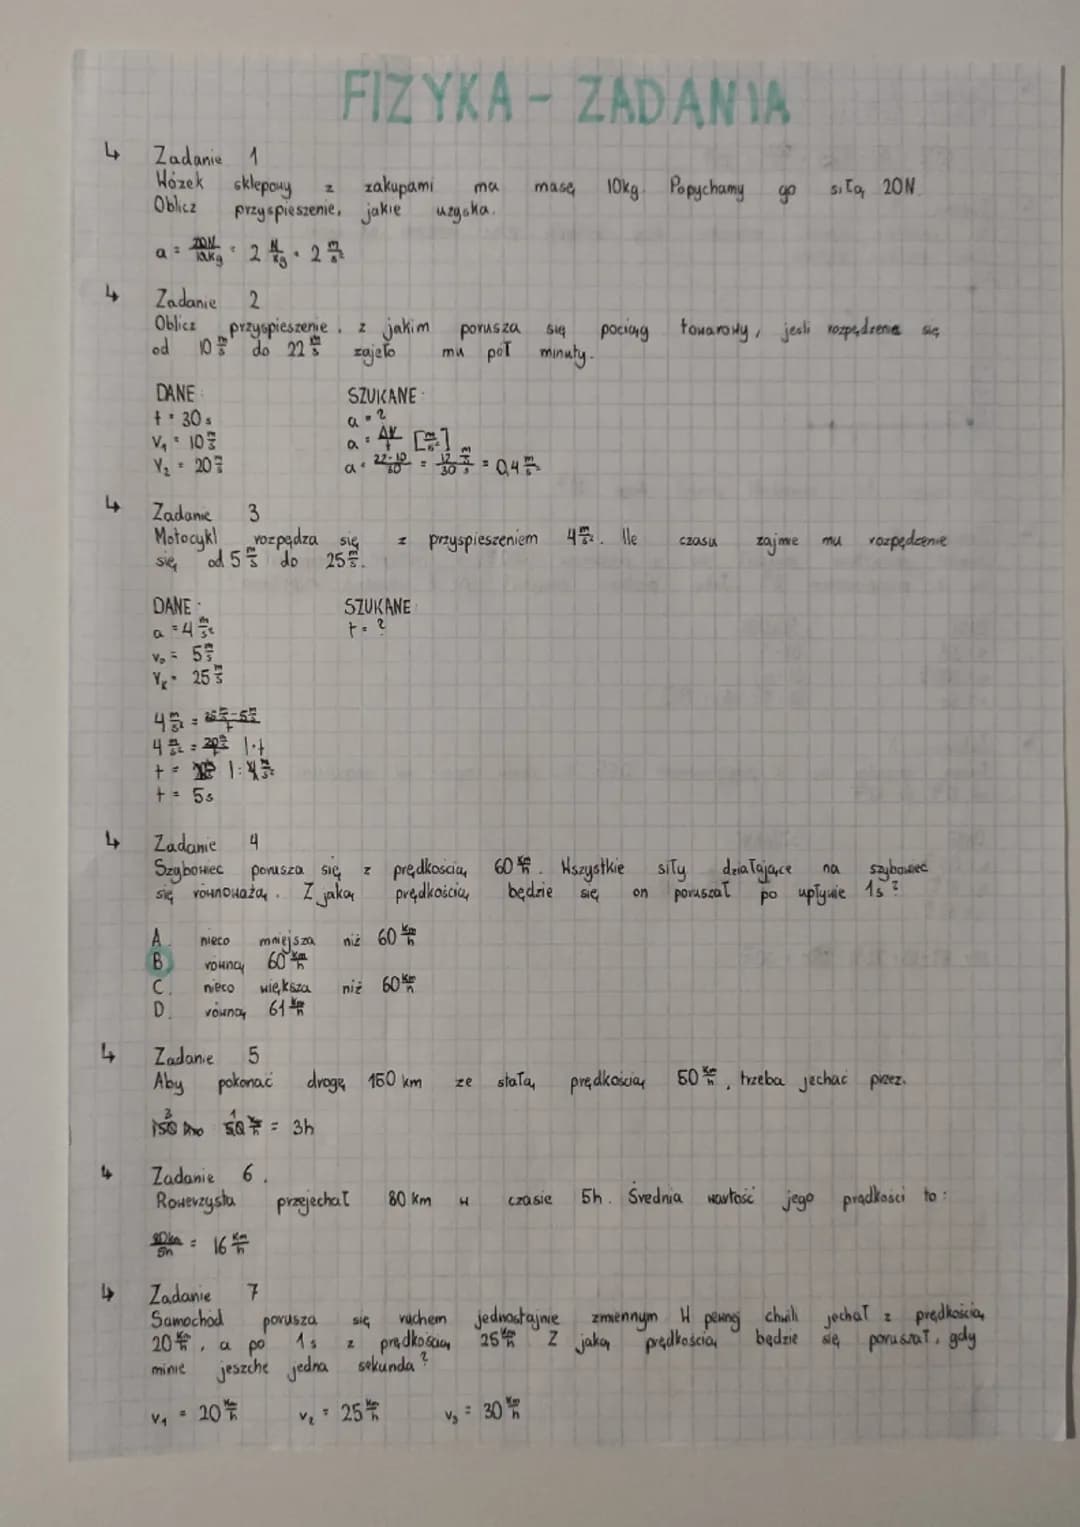 FIZYKA - ZADANIA
↳ Zadanie 1
Wózek sklepowy z zakupami ma masę 10kg. Popychamy go siłą 20N.
Oblicz przyspieszenie, jakie uzyska.
a = 20N/10kg = 2 N/kg = 2 m/s²
↳ Zadanie 2
Oblicz przyspieszenie, z jakim porusza się pociąg towarowy, jeśli rozpędzenie się
od 10 m/s do 22 m/s zajęło mu pół minuty.
DANE: SZUKANE:
t = 30s a = ?
V₁ = 10 m/s a = ΔV/t [m/s²]
V₂ = 20 m/s a = 22-10/30 = 12/30 m/s/s = 0,4 m/s²
↳ Zadanie 3
Motocykl rozpądza się z przyspieszeniem 4 m/s². Ile czasu zajmie mu rozpędzenie
się od 5 m/s do 25 m/s.
DANE: SZUKANE:
a = 4 m/s² t = ?
v₀ = 5 m/s
Vₖ = 25 m/s
4 m/s² = 25 m/s - 5 m/s/t
4 m/s² = 20 m/s/t |·t
t = |: 4 m/s²
t = 5s
↳ Zadanie 4
Szybowiec porusza się z prędkością 60 km/h. Wszystkie siły działające na szybowiec
się równoważą. Z jaką prędkością będzie się on poruszał po upływie 1s?
A. nieco mniejsza niż 60 km/h
B. równą 60 km/h
C. nieco większa niż 60 km/h
D. równą 61 km/h
↳ Zadanie 5
Aby pokonać drogę 150 km ze stałą prędkością 50 km/h, trzeba jechać przez:
150 km 50 km/h = 3h
↳ Zadanie 6.
Rowerzysta przejechał 80 km w czasie 5h. Średnia wartość jego prądkości to:
80km/5h = 16 km/h
↳ Zadanie 7
Samochód porusza się ruchem jednostajnie zmiennym W pewnej chwili jechał z prędkością
20 km/h, a po 1s z prędkością 25 km/h Z jaką prędkością będzie się poruszał, gdy
minie jeszcze jedna sekunda?
V₁ = 20 km/h V₂ = 25 km/h V₃ = 30 km/h